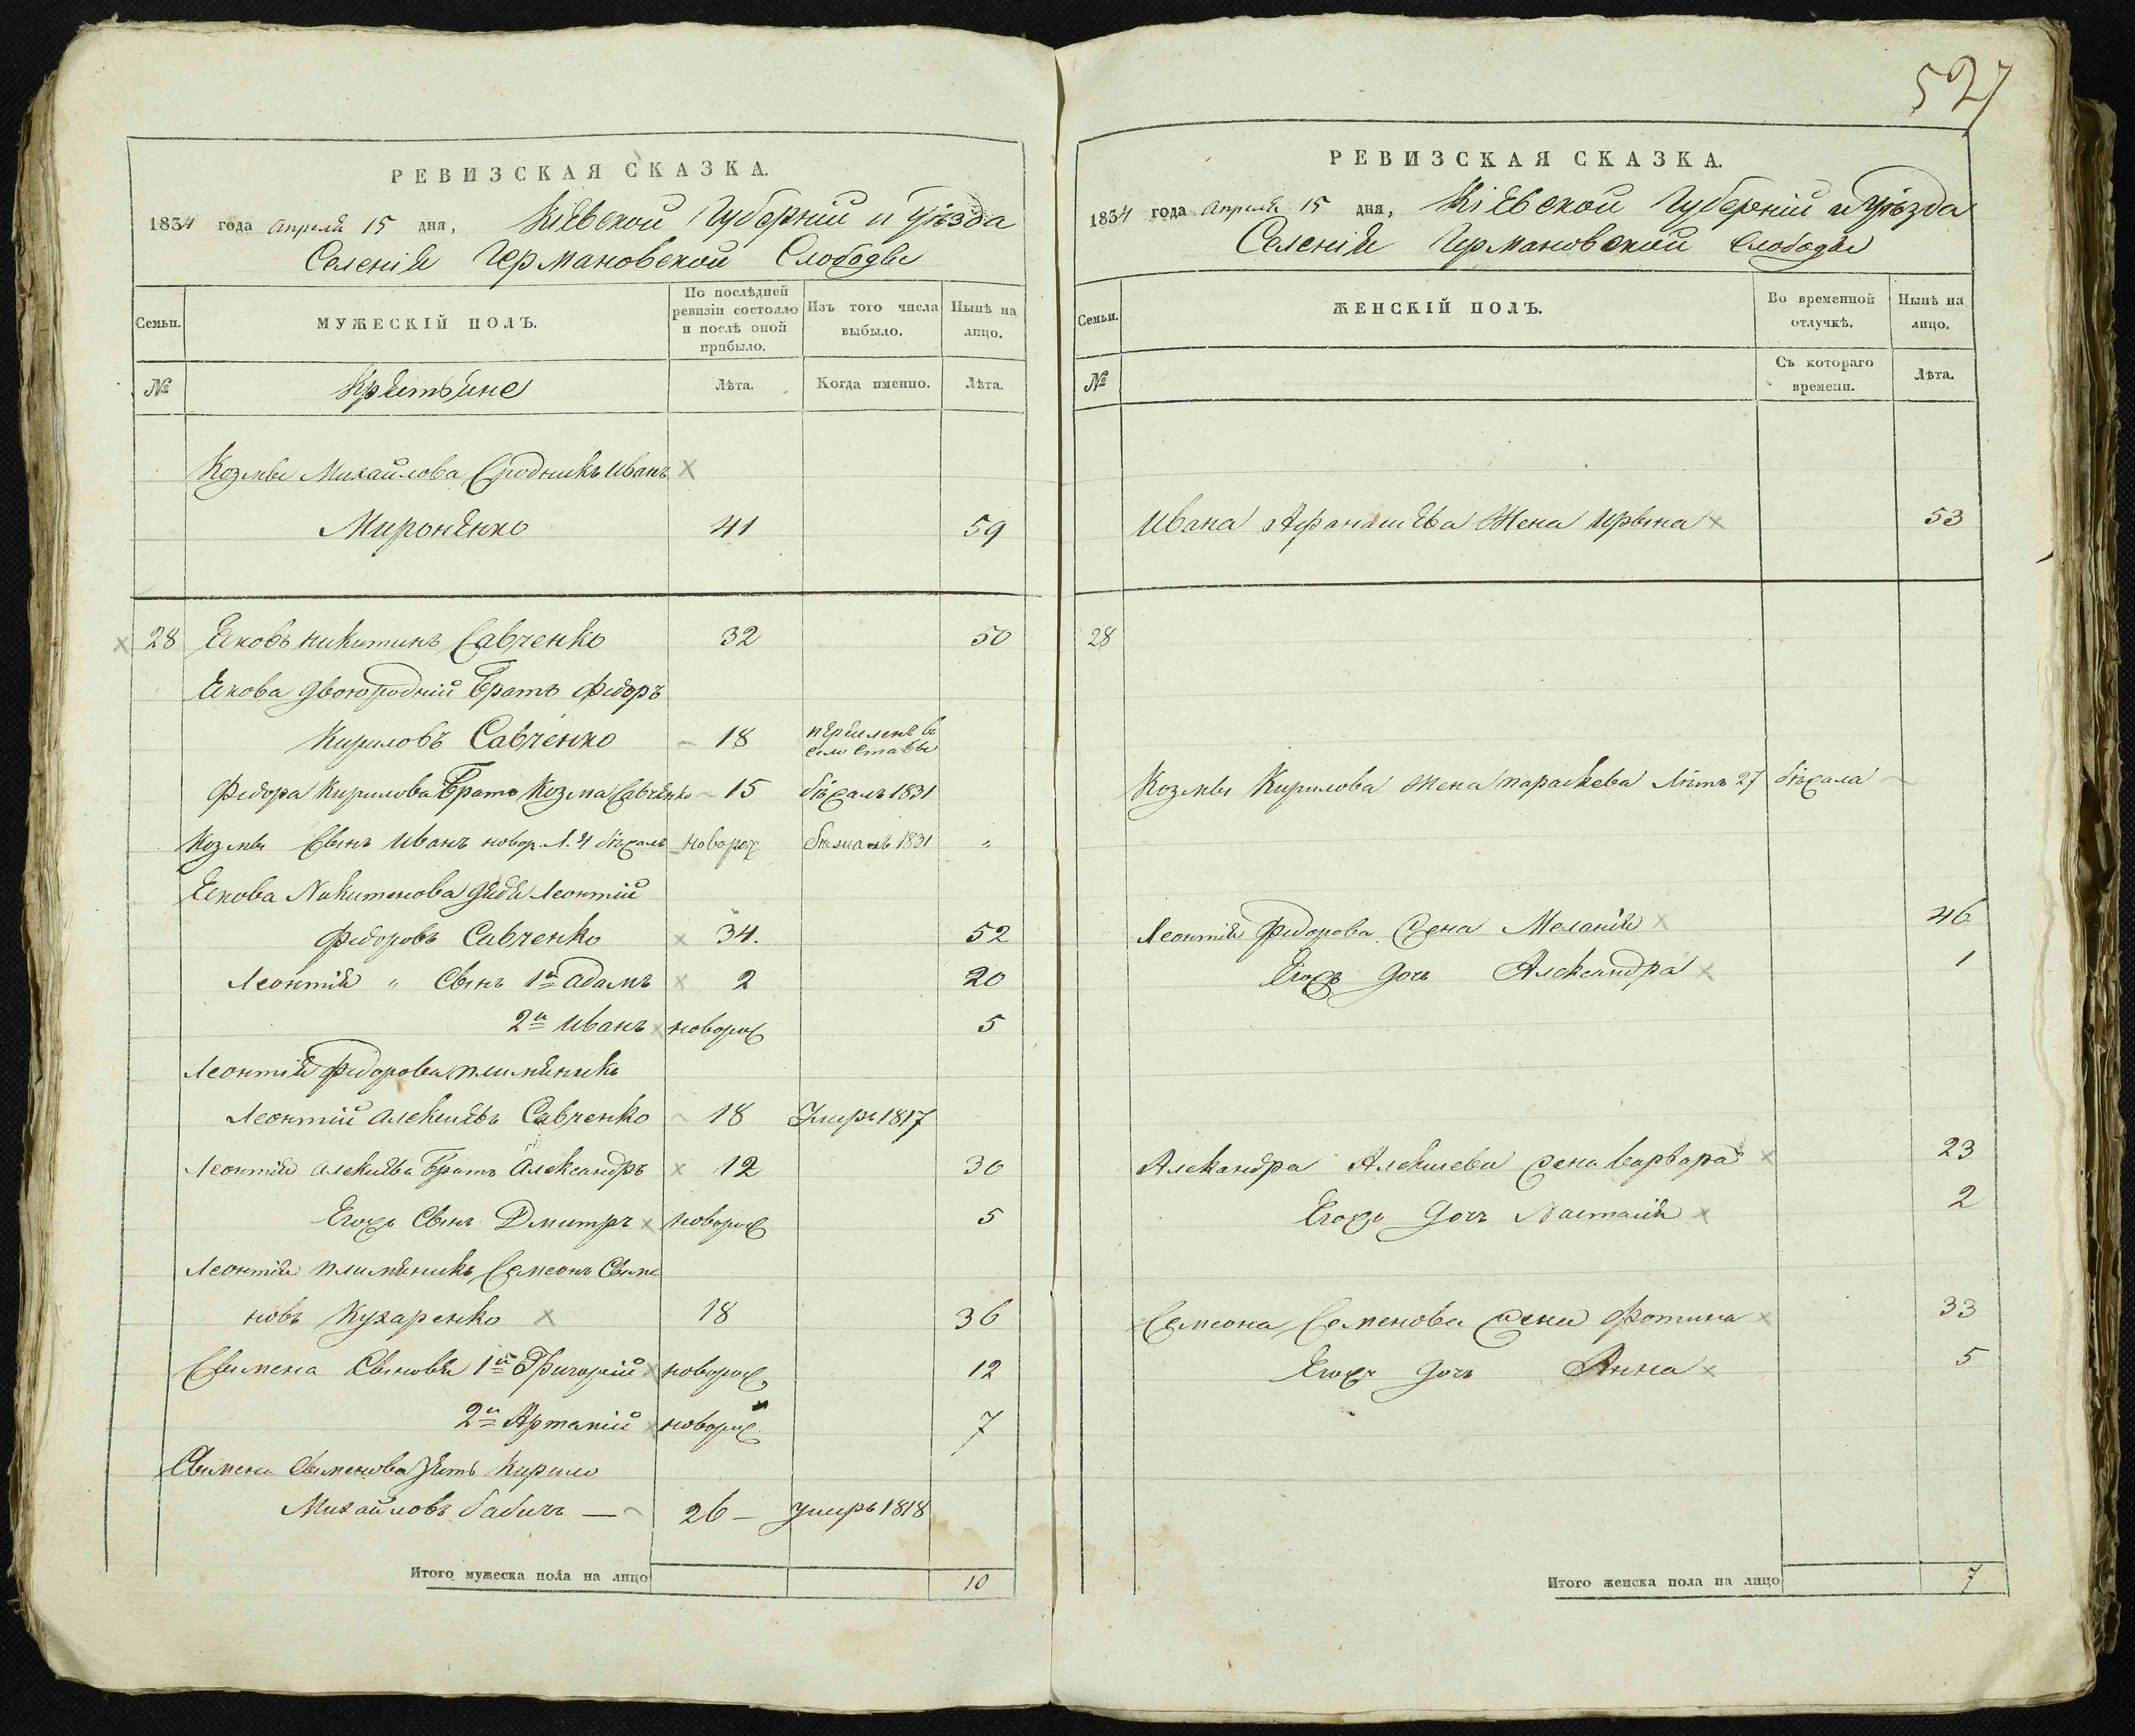 527
РЕВИЗСКАЯ СКАЗКА.
1834 года Апреля 15 дня, Кіевской Губерніи и Уѣзда
Селенія Германовской Слободы
Семьи.
МУЖЕСКІЙ ПОЛЪ.
По послѣдней ревизіи состояло и послѣ оной прибыло.
Изъ того числа выбыло.
Нынѣ на лицо.
№
Крестьяне
Лѣта.
Когда именно.
Лѣта.
Козмы Михайлова Сродникъ Иванъ
Мироненко 41 59
28 Яковъ Никитинъ Савченко 32 50
Якова двоюродній братъ Федоръ
Кириловъ Савченко 18 перечисленъ в село Ставы
Федора Кирилова братъ Козма Савченко 15 бѣжалъ 1831
Козмы Сынъ Иванъ новор. Л. 4 бѣжалъ новорож бѣжалъ 1831 "
Якова Никитенова дядя Леонтій
Федоровъ Савченко 34. 52
Леонтія " Сынъ 1й Адамъ 2 20
2й Иванъ новорож 5
Леонтія Федорова племяникъ
Леонтій Алексѣевъ Савченко 18 Умръ 1817
Леонтія Алексѣева братъ Александръ 12 30
Егожъ Сынъ Дмитръ новорож 5
Леонтія племяникъ Семеонъ Семе
новъ Кухаренко 18 36
Семена Сыновья 1й Григорій новорож 12
2й Артемій новорож 7
Семена Семенова зять Кирило
Михайловъ бабичъ — 26 — умеръ 1818
Итого мужеска пола на лицо 10
РЕВИЗСКАЯ СКАЗКА.
1834 года Апреля 15 дня, Кіевской Губерніи и Уѣзда
Селенія Германовской Слободы
Семьи.
ЖЕНСКІЙ ПОЛЪ.
Во временной отлучкѣ.
Нынѣ на лицо.
№
Съ котораго времени.
Лѣта.
Ивана Афанасиева Жена Ирына 53
28
Козмы Кирилова Жена Параскева Лѣтъ 27 бѣжала
Леонтія Федорова Жена Меланія 46
Егожъ дочь Александра 1
Александра Алексиева жена Варвара 23
Егожъ дочь Настасія 2
Семеона Семенова жена Фотина 33
Егожъ дочь Анна 5
Итого женска пола на лицо 7